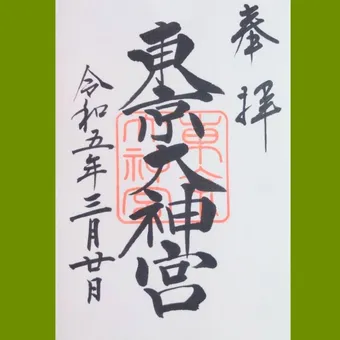 奉拝
東京大神宮
令和五年三月廿日
東京大神宮